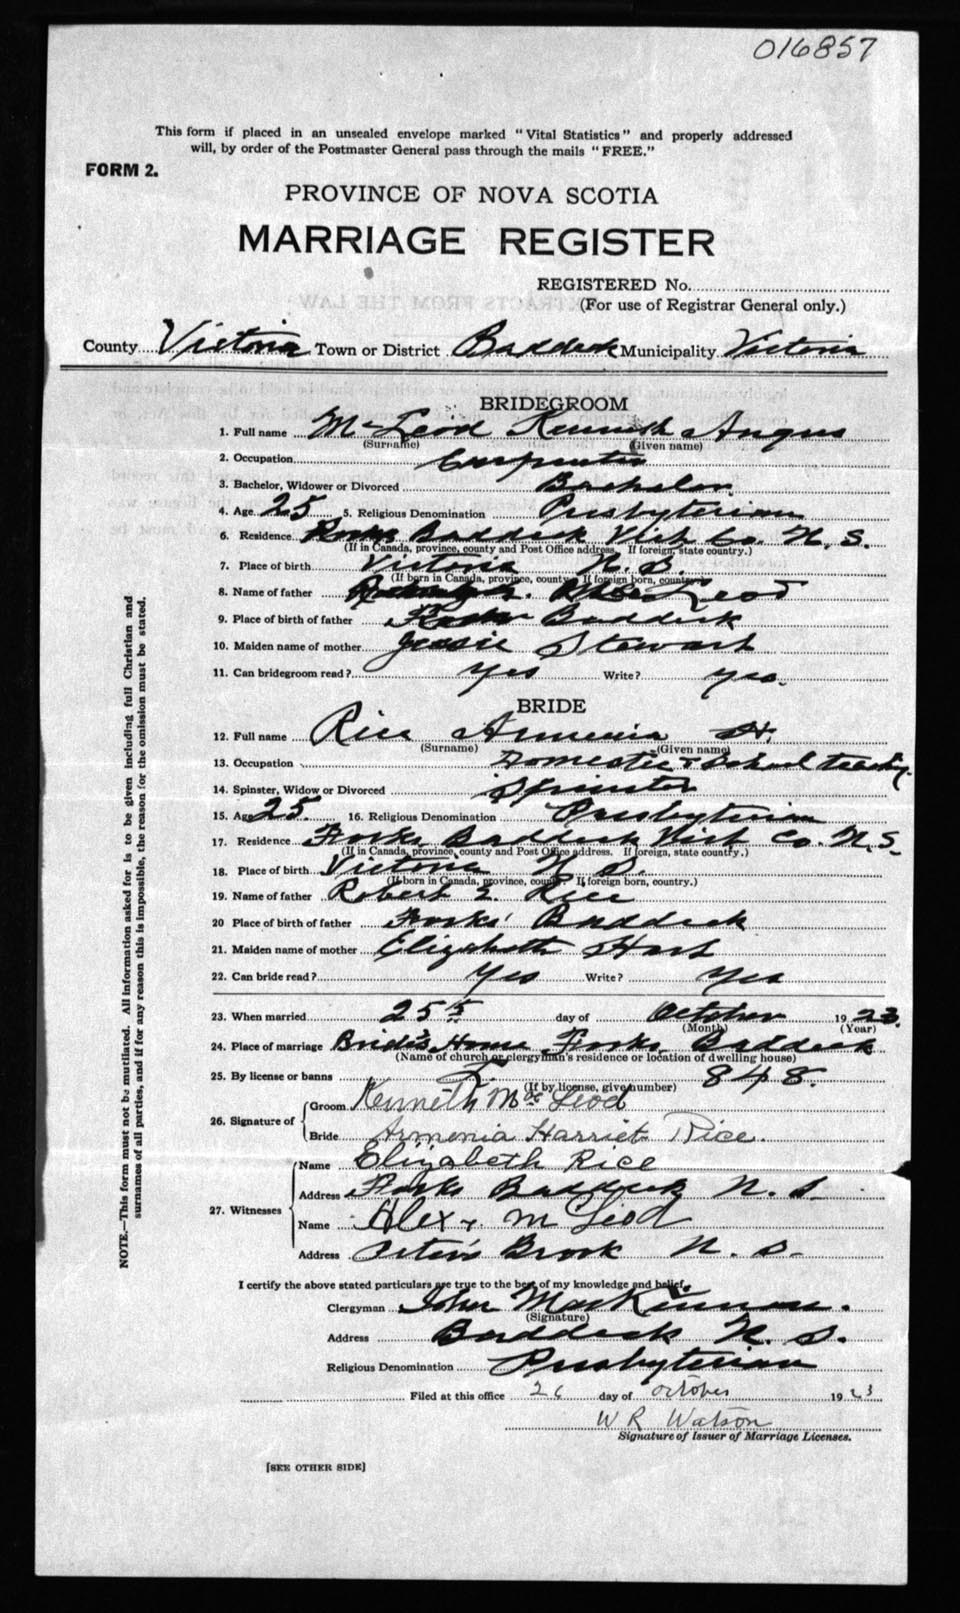 016857
This form if placed in an unsealed envelope marked "Vital Statistics" and properly addressed
will, by order of the Postmaster General pass through the mails "FREE."
FORM 2.
PROVINCE OF NOVA SCOTIA
MARRIAGE REGISTER
REGISTERED No.
(For use of Registrar General only.)
County Victoria Town or District Baddeck Municipality Victoria
BRIDEGROOM
1. Full name McLeod Kenneth Angus
(Surname) (Given name)
2. Occupation Carpenter
3. Bachelor, Widower or Divorced Bachelor
4. Age 25 5. Religious Denomination Presbyterian
6. Residence Forks Baddeck Vict Co. N. S.
(If in Canada, province, county and Post Office address. If foreign, state country.)
7. Place of birth Victoria N. S.
(If born in Canada, province, county. If foreign born, country.)
8. Name of father McLeod
9. Place of birth of father Forks Baddeck
10. Maiden name of mother Jessie Stewart
11. Can bridegroom read? Yes Write? yes.
BRIDE
12. Full name Rice Armenia H.
(Surname) (Given name)
13. Occupation Domestic & School teaching
14. Spinster, Widow or Divorced Spinster
15. Age 25. 16. Religious Denomination Presbyterian
17. Residence Forks Baddeck Vict Co. N. S.
(If in Canada, province, county and Post Office address. If foreign, state country.)
18. Place of birth Victoria N. S.
(If born in Canada, province, county. If foreign born, country.)
19. Name of father Robert Rice
20 Place of birth of father Forks Baddeck
21. Maiden name of mother Elizabeth Hart
22. Can bride read? Yes Write? Yes
23. When married 25 day of October 1923.
(Month) (Year)
24. Place of marriage Bride's Home Forks Baddeck
(Name of church or clergyman's residence or location of dwelling house)
25. By license or banns L. 848.
(If by license, give number)
26. Signature of
Groom Kenneth McLeod
Bride Armenia Harriet Rice.
27. Witnesses
Name Elizabeth Rice
Address Forks Baddeck N. S.
Name Alex r. McLeod
Address Peters Brook N. S.
I certify the above stated particulars are true to the best of my knowledge and belief.
Clergyman John MacKinnon.
(Signature)
Address Baddeck N. S.
Religious Denomination Presbyterian
Filed at this office 26 day of October 1923
W R Watson
Signature of Issuer of Marriage Licenses.
[SEE OTHER SIDE]
NOTE.—This form must not be mutilated. All information asked for is to be given including full Christian and
surnames of all parties, and if for any reason this is impossible, the reason for the omission must be stated.